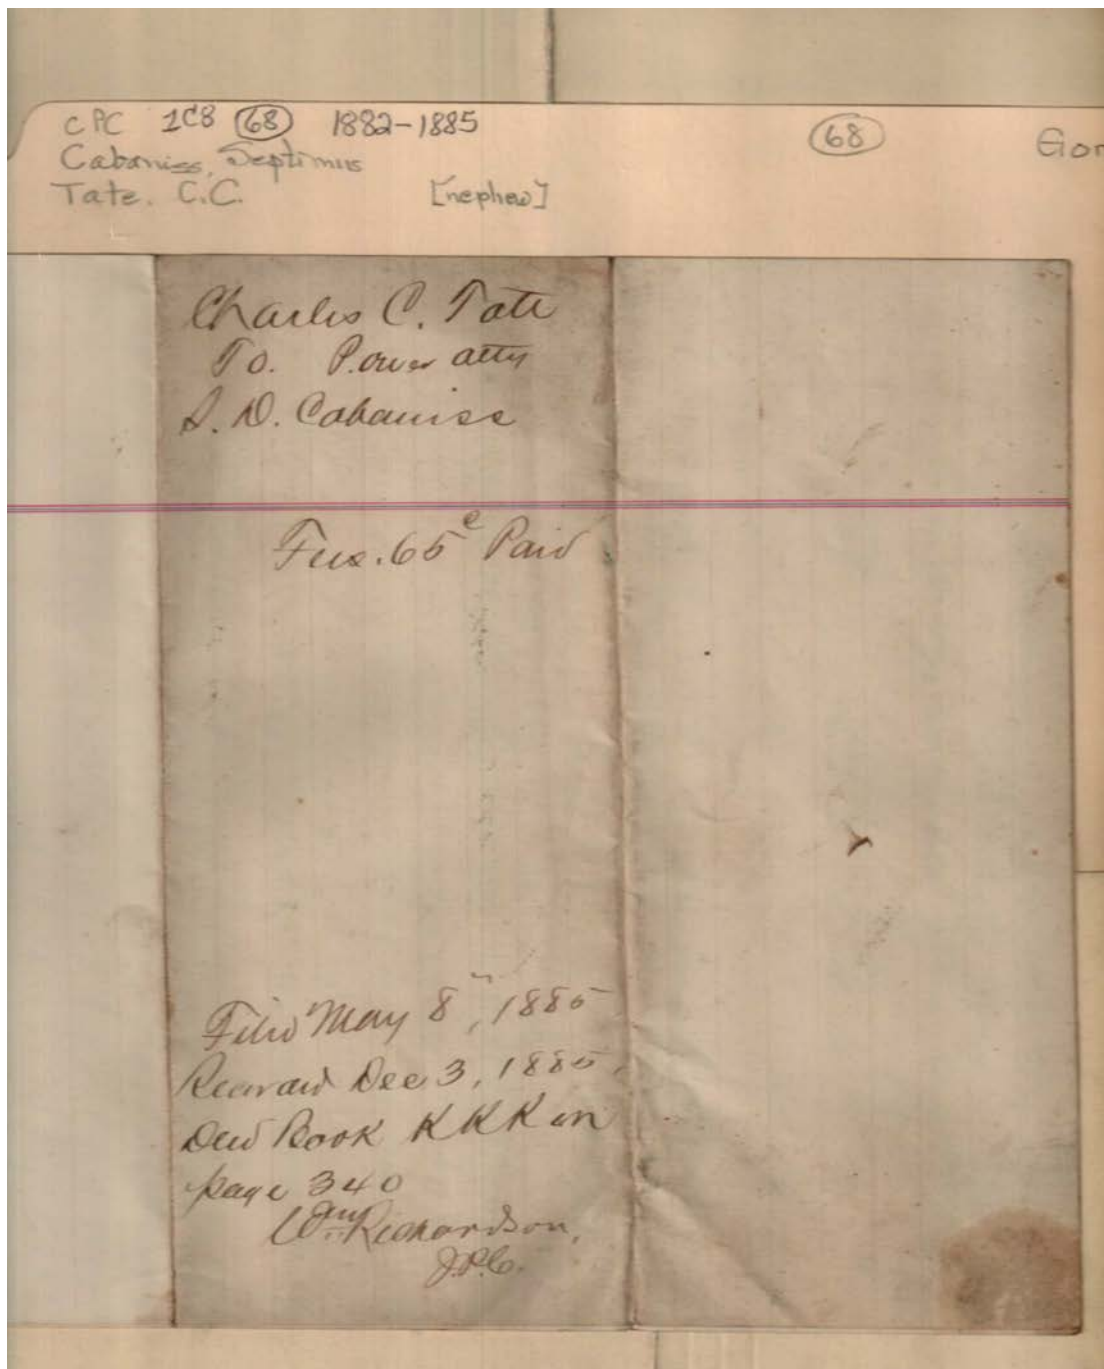 CPC 1C8 68 1882-1885
68
Gor
Cabaniss, Septimus
Tate, C.C. [nephew]
Charles C. Tate
To. Power atty
S. D. Cabaniss
Fees. 65c Paid
Filed May 8", 1885
Record Dec 3, 1885,
Deed Book KKK on
page 340
Wm Richardson,
J.P.C.